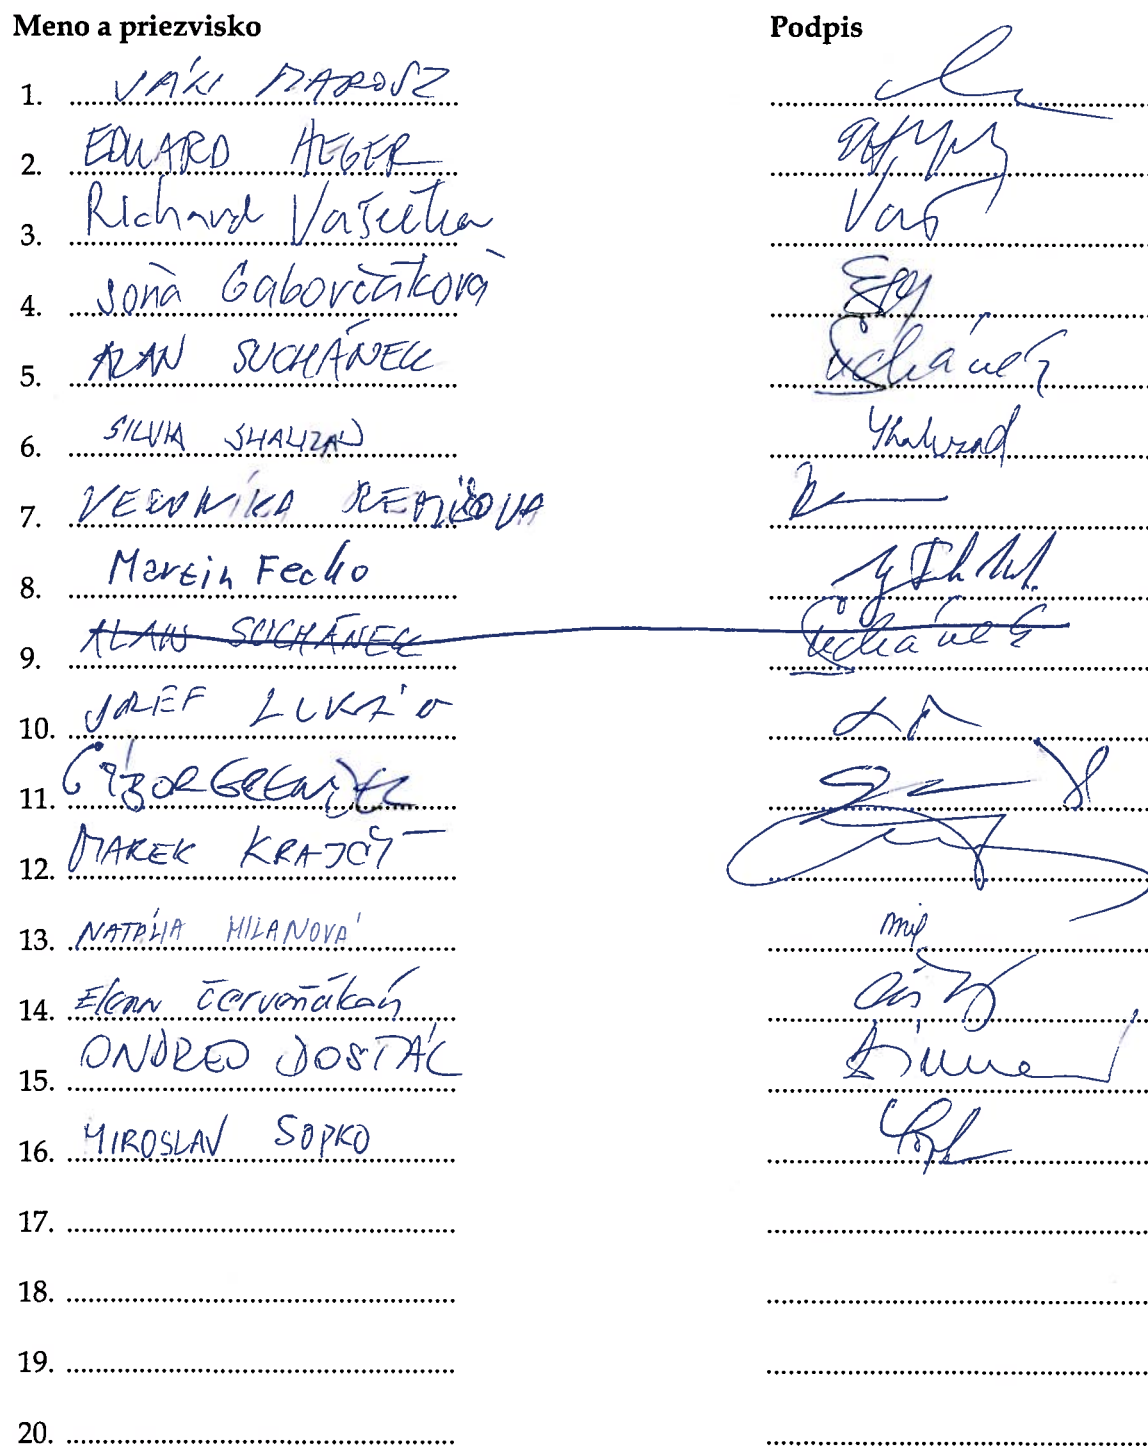 Meno a priezvisko Podpis
1. JÁN MAROSZ
2. EDUARD HEGER
3. Richard Vašečka Vaš
4. Soňa Gaborčáková
5. ALAN SUCHÁNEK Suchánek
6. SILVIA SHAHZAD Shahzad
7. VERONIKA REMIŠOVA
8. Martin Fecko
9. ALAN SUCHÁNEK Suchánek
10. JOZEF LUKÁČ
11. GÁBOR GRENDEL
12. MAREK KRAJČÍ
13. NATÁLIA MILANOVÁ mil
14. Elena Červeňáková
15. ONDREJ DOSTÁL
16. MIROSLAV SOPKO
17.
18.
19.
20.